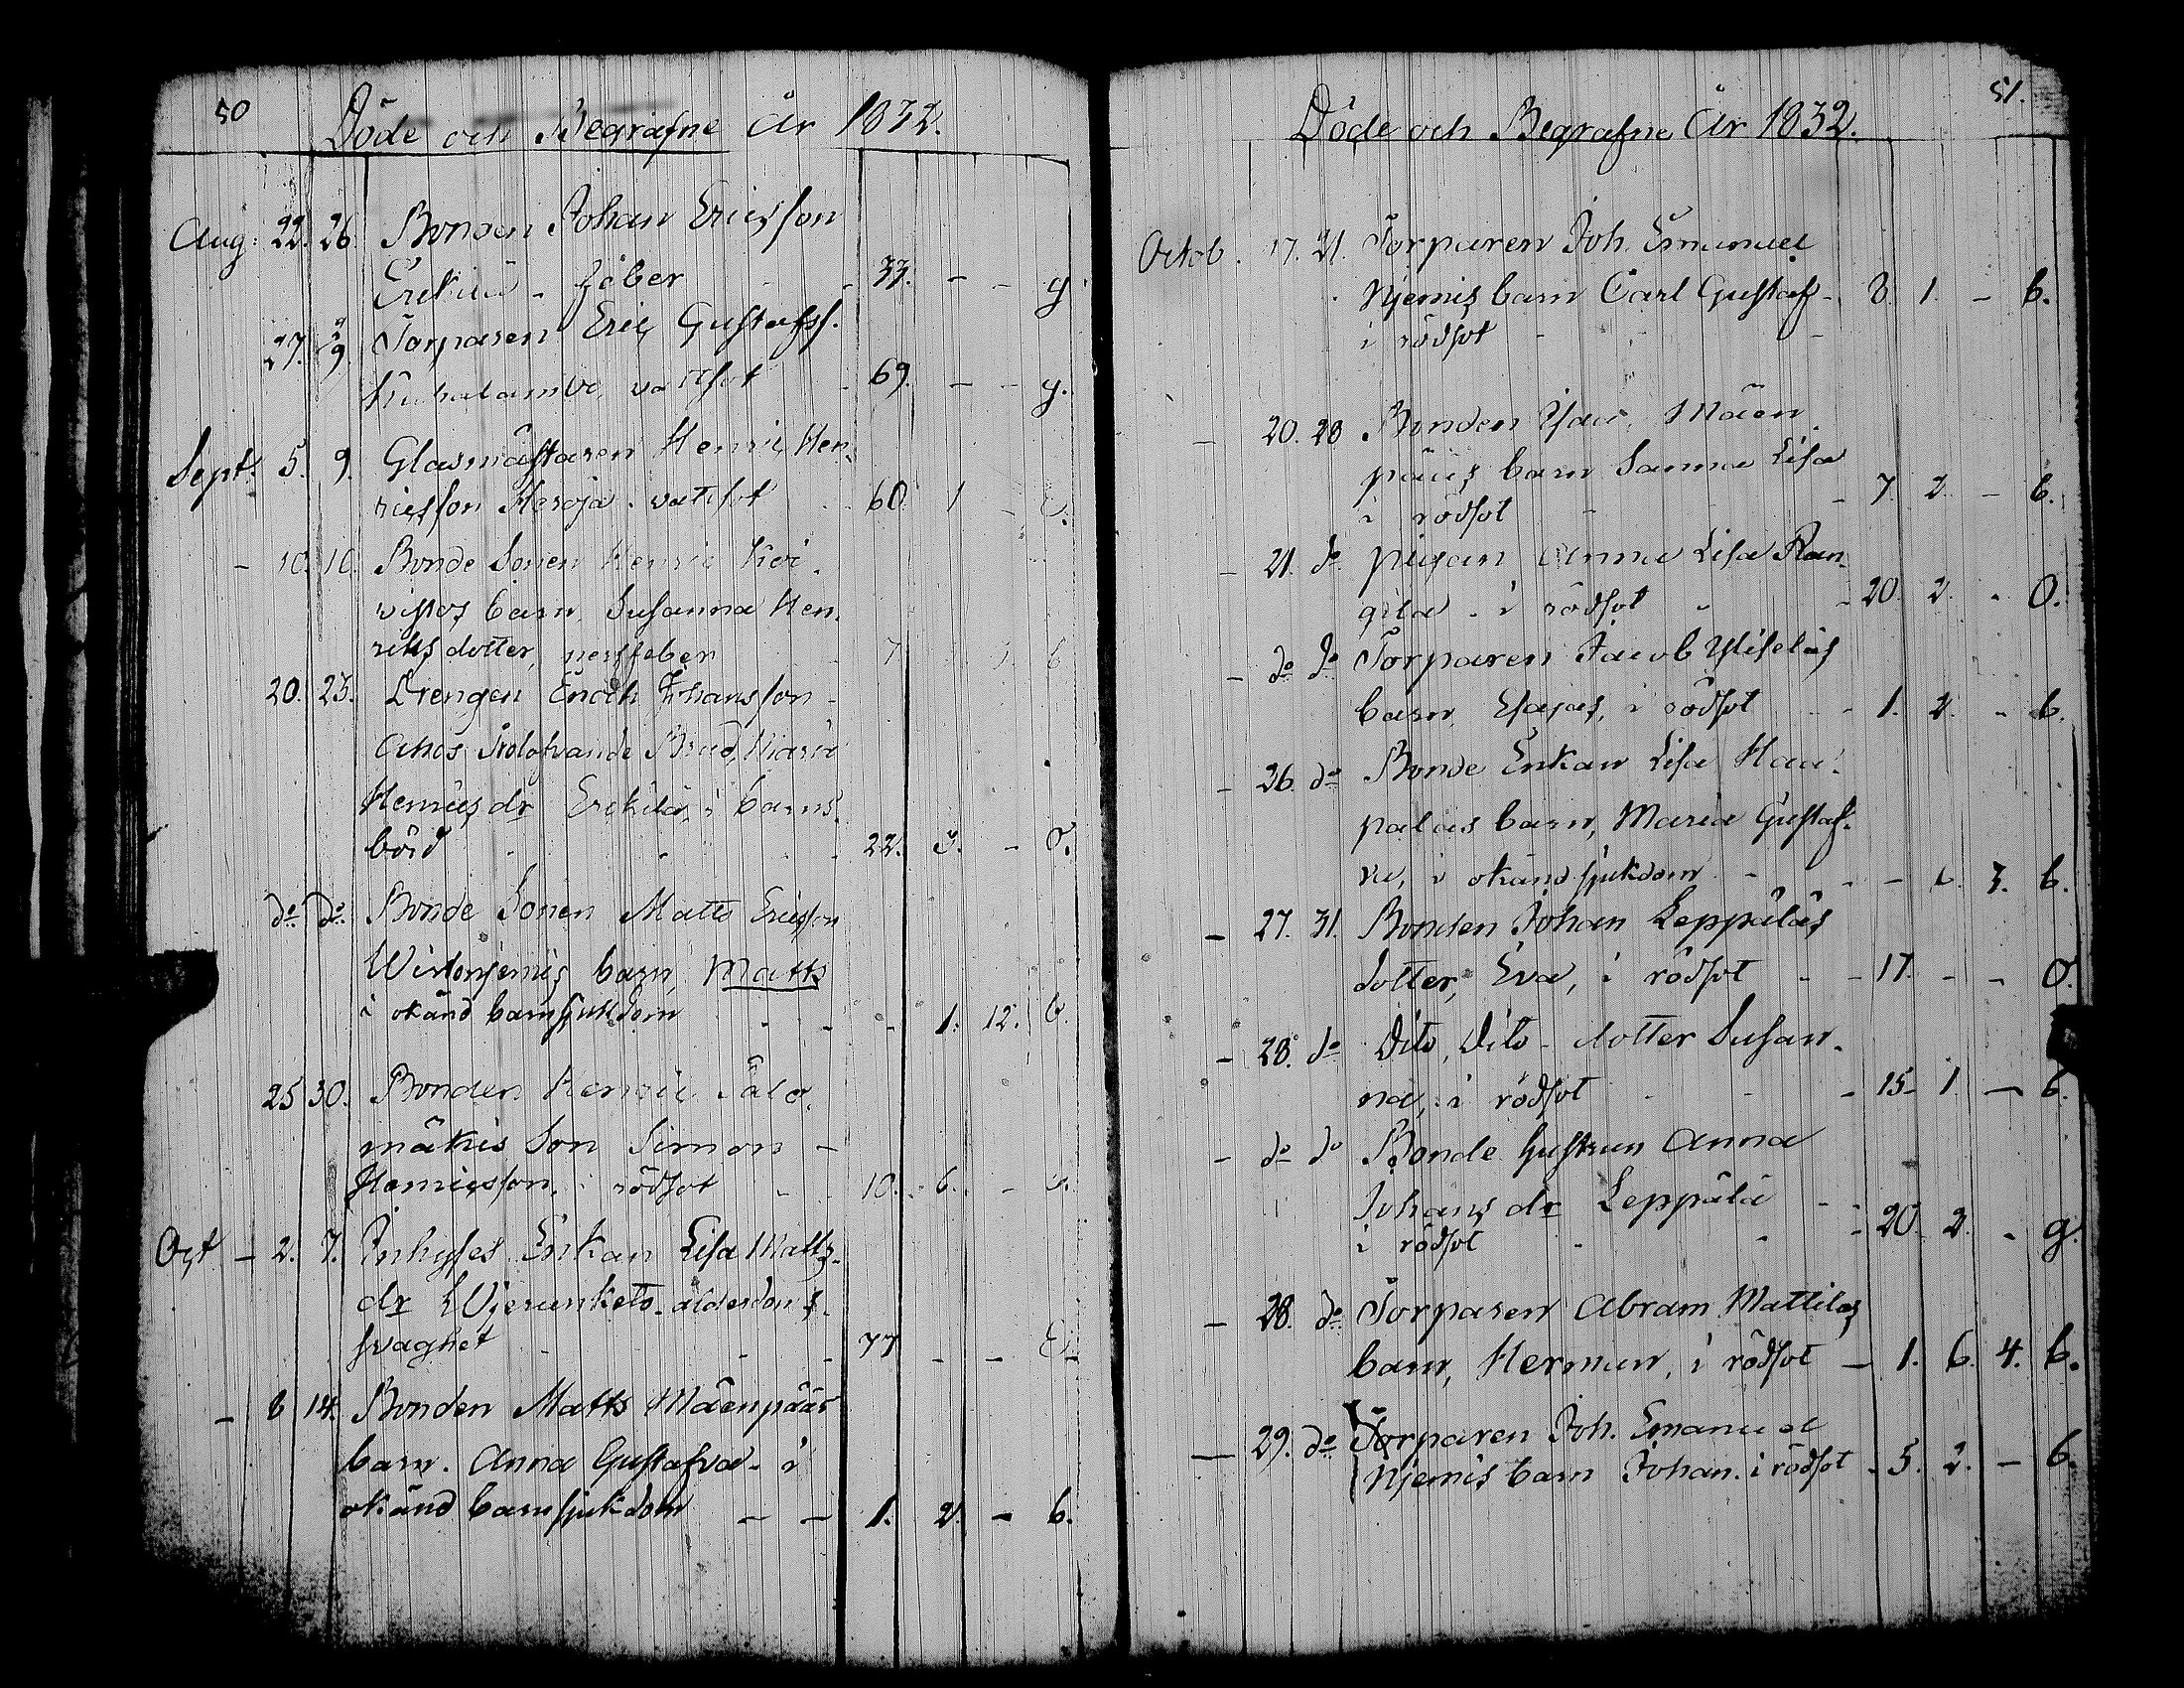 50
Döde och Begrafne År 1832.
Aug: 22. 26. Bonden Johan Ericsson
Erikilä - feber - 33. - - g.
27. 9. Torparen Eric Gustafss.
vattsot - 69. - - g.
Sept. 5. 9. Glasmästaren Henric Hen-
ricsson Heroja. vattsot 60. 1 - E.
- 10. 16. Bonde Sonen Henric Koi-
vistos barn, Susanna Hen-
riks dotter, nerffeber 7 b.
20. 23. Drengen Enoch Johansson
Ahos Trolofvande Brud, Maria
Henrics dr Erekilä, i barns-
börd - 22. 3. - O.
do do Bonde Sonen Matts Ericsson
barn, Matts
i okänd barnsjukdom - - 1. 12. b.
25 30. Bonden Henric Salo-
mäkis Son Simon -
Henricsson, rödsot - 10. 6. -
Oct - 2. 7. Inhyses Enkan Lisa Matts-
dr Wjerunketo. ålderdoms-
svaghet - - 77 - - E.
- 8 14. Bonden Matts Mäenpääs
barn. Anna Gustafva - i
okänd barnsjukdom - - 1. 2. - b.
51.
Döde och Begrafne År 1832.
Octob. 17. 21. Torparen Joh. Emanuel
Njemis barn Carl Gustaf - 8. 1. - b.
i rödsot - -
- 20. 28 Bonden Isac Mäen
pääs barn Sanna Lisa
i rödsot - - 7. 2. - b.
- 21. do pigan Anna Lisa Ran-
gila - i rödsot - - 20. 2. - O.
- do do Torparen Jacob Yliseläs
barn, Esajas, i rödsot - - 1. 2. - b.
- 26. do Bonde Enkan Lisa Haa-
palas barn, Maria Gustaf-
va, i okänd sjukdom - - - 6. 3. b.
- 27. 31. Bonden Johan Leppäläs
dotter, Eva, i rödsot - - 17. - - O.
- 28. do Dito, Dito - dotter Susan-
na, i rödsot - - - 15 - 1 - b.
- do do Bonde hustrun Anna
Johans dr Leppälä -
i rödsot - - - 20. 2. - g.
- 28. do Torparen Abram Mattilas
barn, Herman, i rödsot - 1. 6. 4. b.
- 29. do Torparen Joh. Emanuel
Njemis barn Johan. i rödsot - 5. 2. - b.